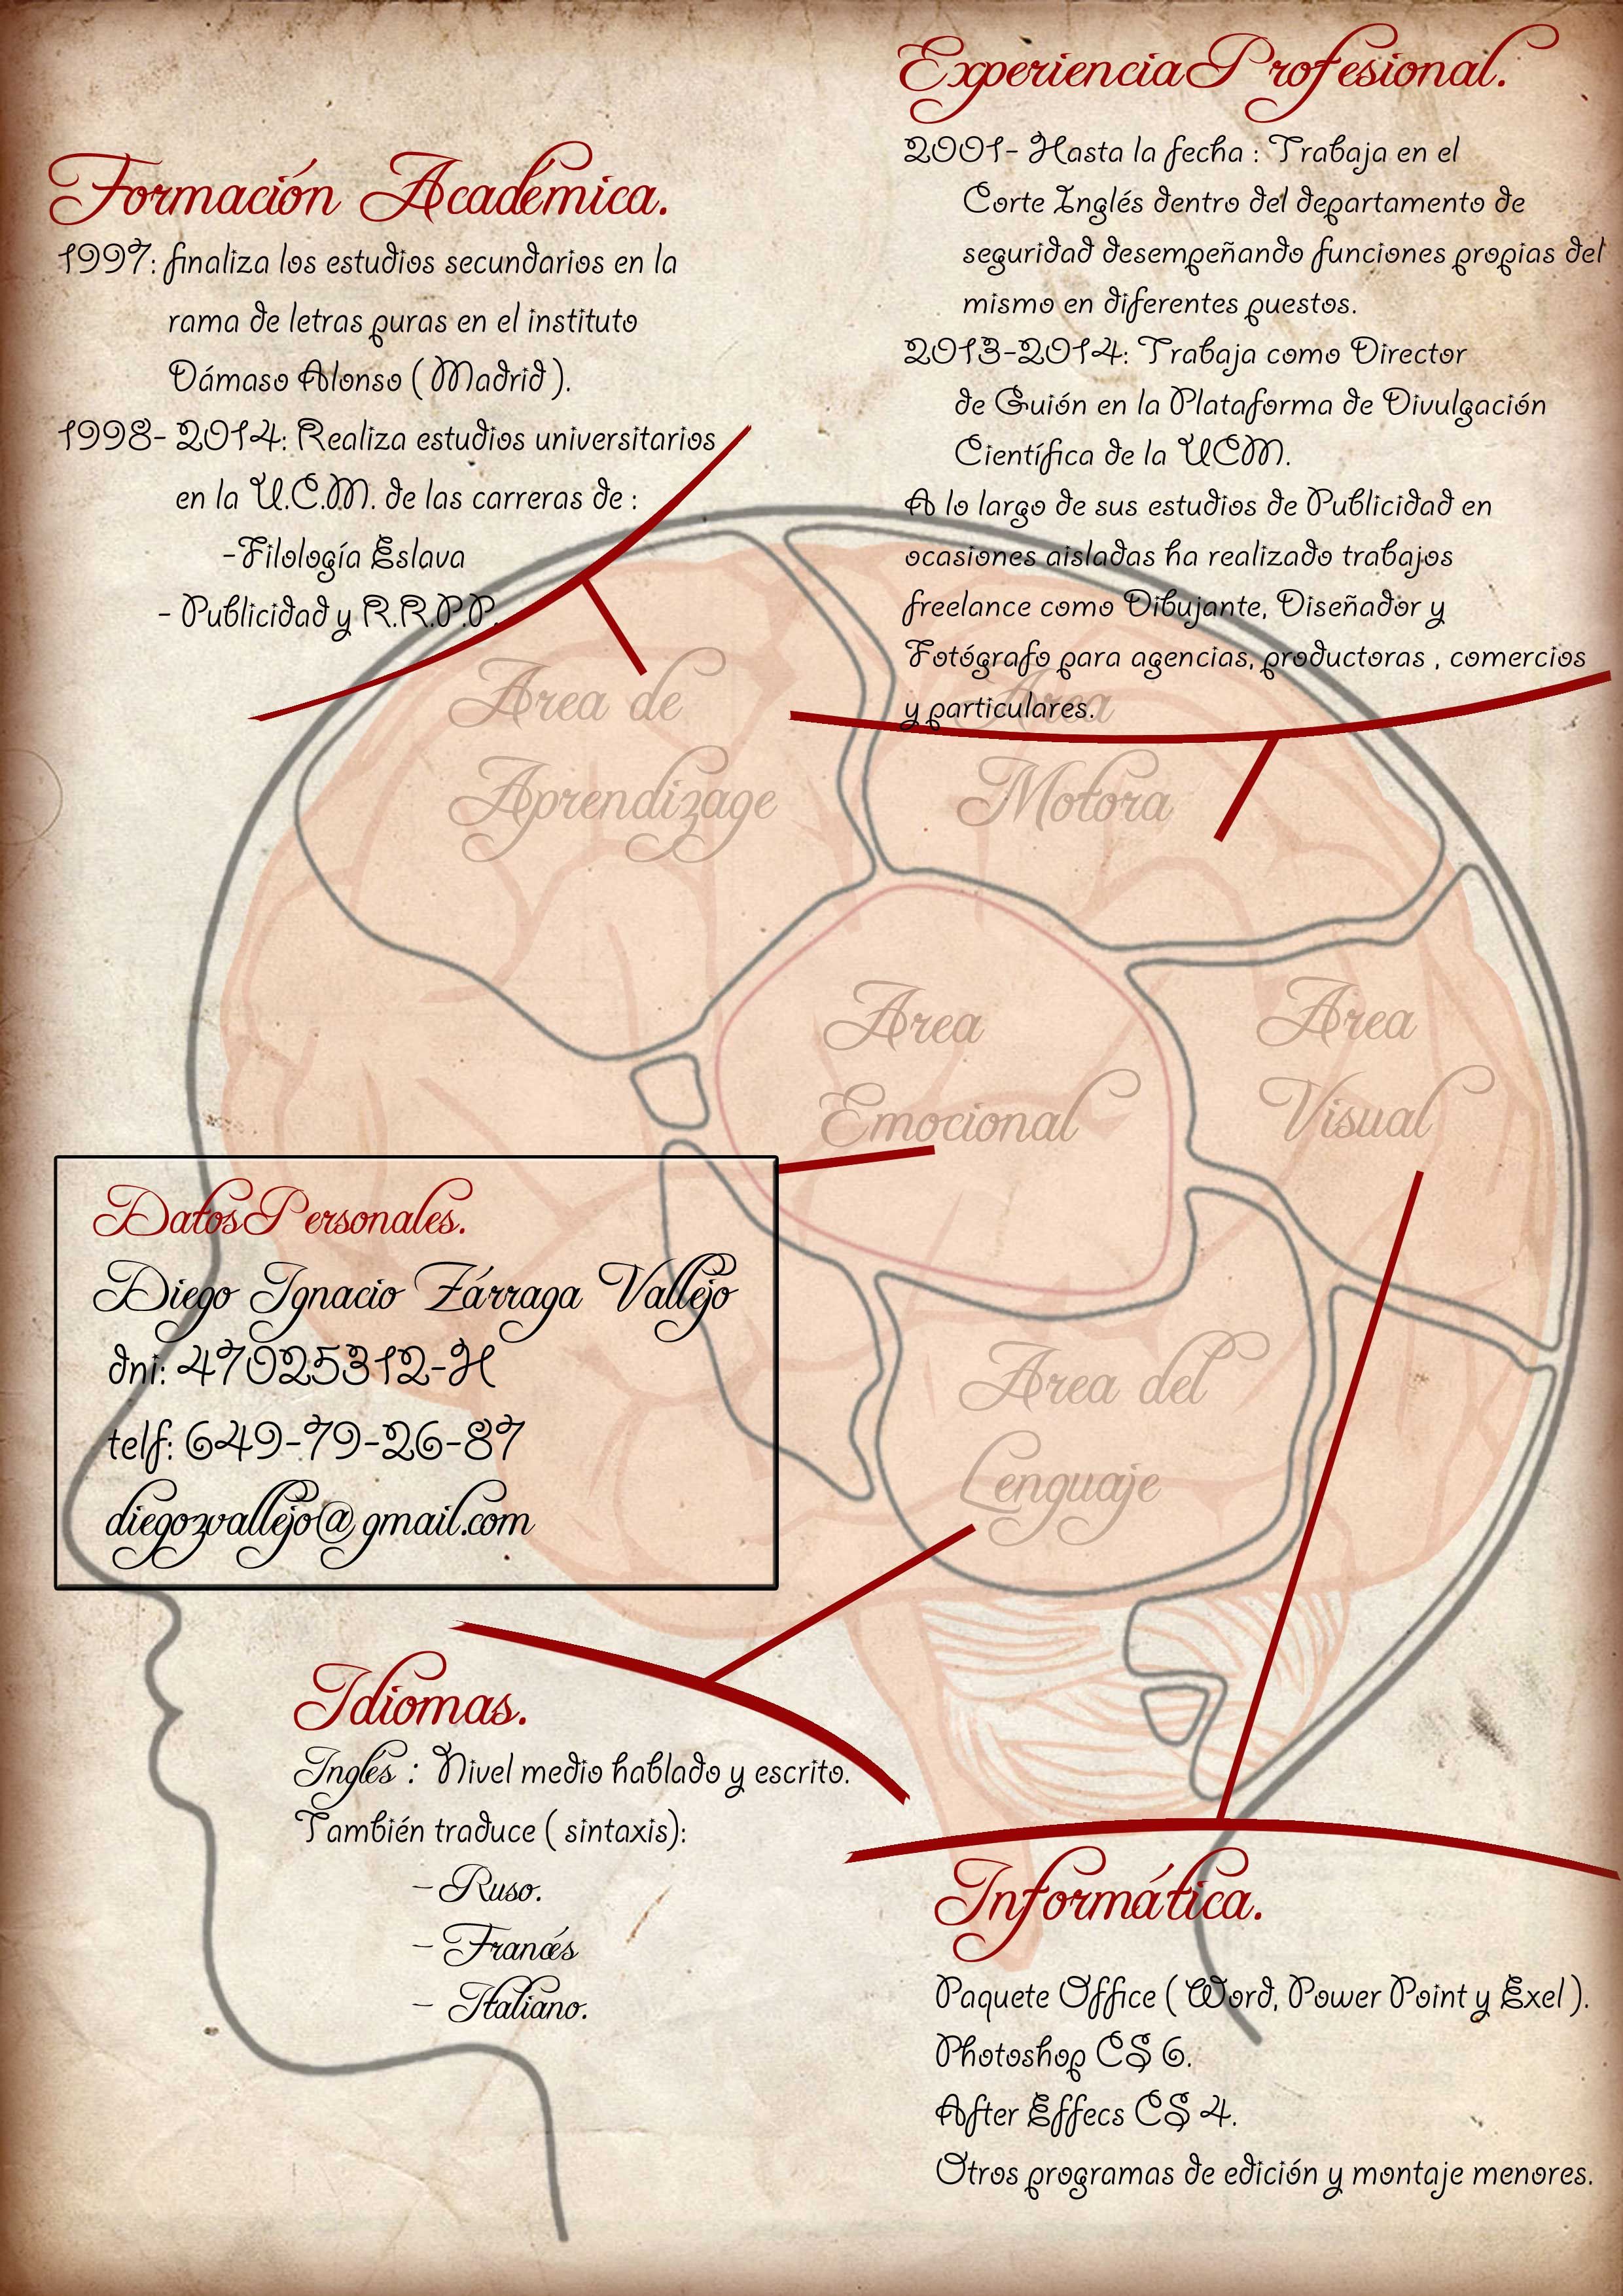 Formación Academica.
1997: finaliza los estudios secundarios en la
rama de letras puras en el instituto
Dámaso Alonso ( Madrid ).
1998- 2014: Realiza estudios universitarios
en la U.C.M. de las carreras de :
-Filología Eslava
- Publicidad y R.R.P.P.
Experiencia Profesional.
2001- Hasta la fecha : Trabaja en el
Corte Inglés dentro del departamento de
seguridad desempeñando funciones propias del
mismo en diferentes puestos.
2013-2014: Trabaja como Director
de Guión en la Plataforma de Divulgación
Científica de la UCM.
A lo largo de sus estudios de Publicidad en
ocasiones aisladas ha realizado trabajos
freelance como Dibujante, Diseñador y
Fotógrafo para agencias, productoras , comercios
y particulares.
Area de
Aprendizage
Area
Motora
Area
Emocional
Area
Visual
Datos Personales.
Diego Ignacio Zárraga Vallejo
dni: 47025312-H
telf: 649-79-26-87
diegozvallejo@gmail.com
Area del
Lenguaje
Idiomas.
Inglés : Nivel medio hablado y escrito.
También traduce ( sintaxis):
- Ruso.
- Francés
- Italiano.
Informática.
Paquete Office ( Word, Power Point y Exel ).
Photoshop CS 6.
After Effecs CS 4.
Otros programas de edición y montaje menores.